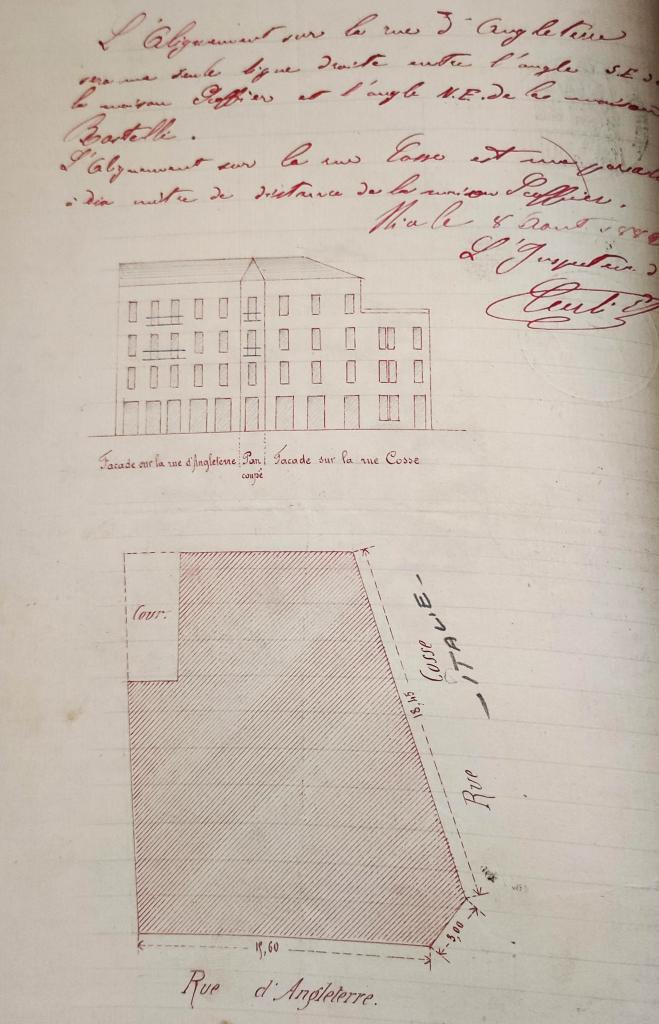 L'Alignement sur la rue d'Angleterre
sera une seule ligne droite entre l'angle S.E. de
la maison et l'angle N.E. de la maison
L'Alignement sur la rue Cosse est une
à dix mètre de distance de la maison
8 Août
L'Inspecteur
Facade sur la rue d'Angleterre Pan coupé Facade sur la rue Cosse
Cour.
Rue Cosse
- ITALIE -
18,45
3,00
15,60
Rue d'Angleterre.